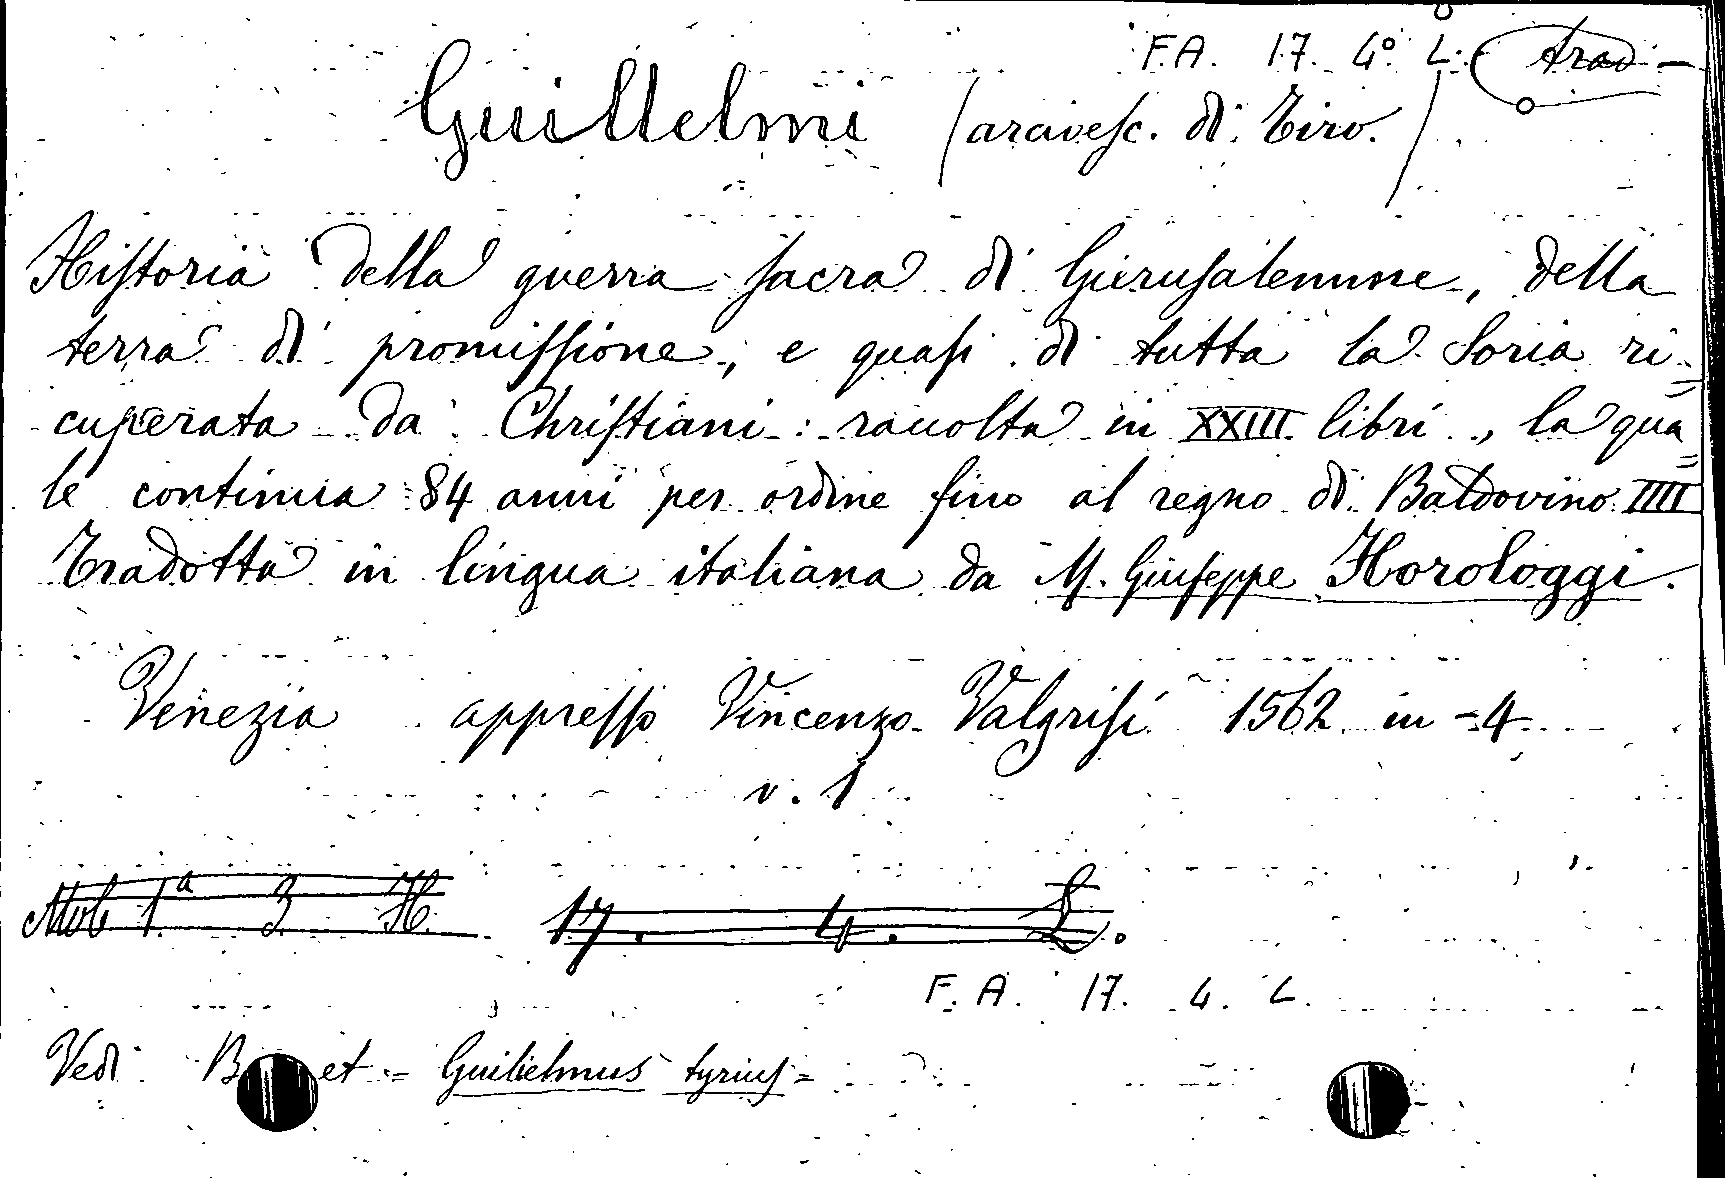 F.A. 17. 4º L. Trad
Guillelmi (arcivesc. di Tiro.)
Historia della guerra sacra di Gierusalemme, della
terra di promissione, e quasi di tutta la Soria ri=
cuperata da Christiani: racolta in XXIII libri, la qua=
le continua 84 anni per ordine fino al regno di Baldovino IIII
Tradotta in lingua italiana da M. Giuseppe Horologgi.
Venezia appresso Vincenzo Valgrisi 1562 in -4-
v. 1
Mob 1ª 3 H. 17. 4. L.
F. A. 17. 4. L.
Vedi = Guilielmus tyrius =